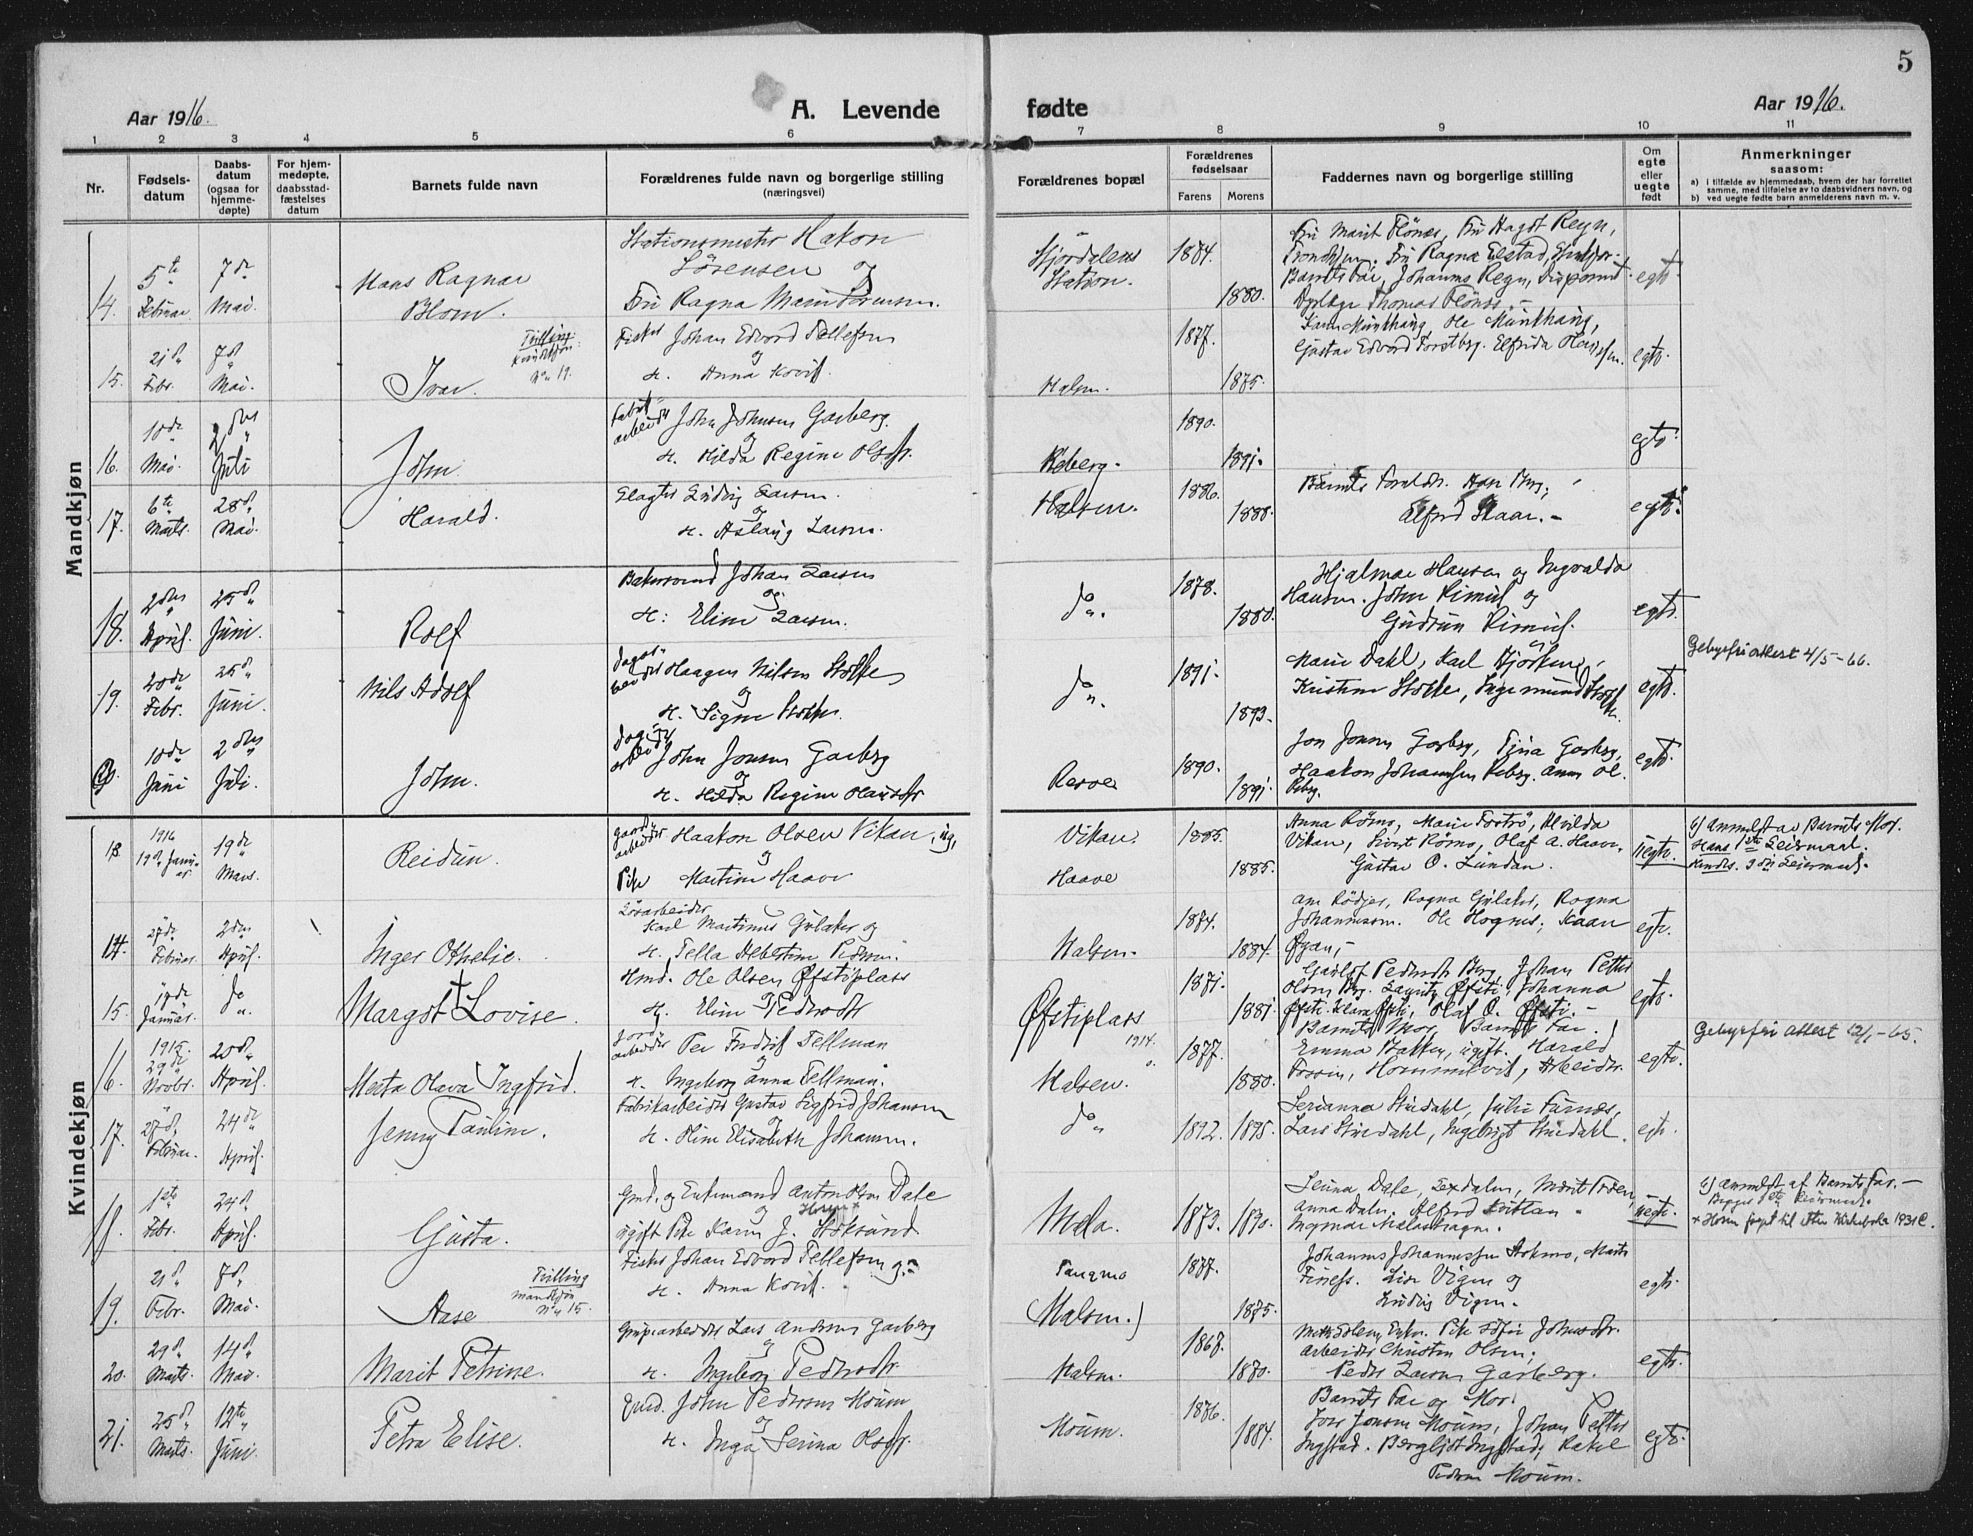 5
Aar 1916.
A. Levende fødte
Aar 1916.
1 2 3 4 5 6 7 8 9 10 11
Nr.
Fødsels-datum
Daabs-datum (ogsaa for hjemme-døpte)
For hjem-medøpte, daabsstad-fæstelses datum
Barnets fulde navn
Forældrenes fulde navn og borgerlige stilling (næringsvei)
Forældrenes bopæl
Forældrenes fødselsaar
Farens Morens
Faddernes navn og borgerlige stilling
Om egte eller uegte født
Anmerkninger saasom:
a) i tilfælde av hjemmedaab, hvem der har forrettet samme, med tilføielse av to daabsvidners navn, og
b) ved uegte fødte barn anmelderens navn m. v.
Mandkjøn
14. 5te Februar 7de Mai. Hans Ragnar Blom.
Stationsmester Hakon Sörensen og Fru Ragna Marie Sörensen.
Stjørdalens Station. 1874. 1880.
Fru Marit Flönes, Fru Aagot Regn,
Fru Ragna Elstad,
Barnets Far, Johannes Regn, Disponent
Dyrlæge Thomas Flönes
egte
15. 21de Febr. 7de Mai. Ivar. Tvilling Kvindekjøn No 19.
Fisker Johan Edvard Tellefsen og H. Anna Kovit.
Halsen. 1877. 1875.
Karen Munkhaug, Ole Munkhaug,
Gustav Edvard Forstberg. Elfrida
egte.
16. 10de Mai. 2den Juli John.
Fabrikarbeider John Johnsen Garberg. og H. Hilda Regine Olsdtr.
Reberg. 1890. 1891. egte.
17. 6te Marts. 28de Mai. Harald.
Slagter Ludvig Larsen. og H. Aslaug Larsen.
Halsen. 1886. 1888.
Barnets Foreldre.
Alfred Skaar.
egte.
18. 2den April. 25de Juni. Rolf
Bakersvend Johan Larsen og H: Eline Larsen.
do. 1878. 1880.
Hjalmar Hansen og Ingvalda
Hansen. John Kimul og
Gudrun Kimul.
egte.
19. 20de Febr. 25de Juni. Nils Adolf
Haagen Nilsen Stokke og H. Signe Stokke.
do. 1891. 1893.
Marie Dahl, Karl
Kristine Stokke, Ingemund Stokke.
egte.
Gebyrfri attest 4/5-66.
10de Juni 2den Juli. John.
John Jonsen Garberg og H. Hilda Regine Hansdtr
1890. 1891.
Jon Jonsen Garberg, Garberg,
Haakon Johannessen Reberg.
egte.
Kvindekjøn
13. 1916 19de Januar 19de Mars. Reidun.
Gaardarbeider Haakon Olsen Vikan, ug, og Pike Martine Haave
Vikan. Haave 1885. 1885.
Anna Röms, Marie Alvilda
Vikan, Sivert Röms, Olaf A. Haave.
Gustav O. Lundan.
uegte.
b) Anmeldt av Barnets Mor.
Hans 1ste Leiermaal.
Hendes. 3die Leiermaal.
14. 27de Februar. 2den April. Inger Othelie.
Løsarbeider Karl Martinus Gulaker og H. Tella Albertine
Halsen. 1874. 1884.
Ragna Gulaker, Ragna
Johannessen. Ole Hognes, Kaare
Øyan,
egte.
15. Januar. do. Margot Lovise.
Hmd. Ole Olsen Øfstiplass og H. Eline Pedersdtr
Øfstiplass 1871. 1881.
Gulof Pedersdtr Berg, Johan Petter
Olsen Berg. Lauritz Øfsti, Johanna
Øfsti. Klara Øfsti, Olaf O. Øfsti.
egte.
16. 1915 29de Novbr. 20de April. Marta Olava Ingfrid.
Jordarbeider Per Fredrik Tellman og H. Ingeborg Anna Tellman.
Halsen. 1914. 1877. 1880.
Barnets Mor, Barnets Far.
Emma Bakken, ugift. Harald
Fossin, Hommelvik, Arbeider
egte.
Gebyrfri attest 12/1-65.
17. 27de Februar. 24de April. Jenny Pauline.
Fabrikarbeider Gustav Sigfred Johansen og H. Oline Elisabeth Johansen.
do 1892. 1895.
Serianna Stuedahl, Julie Furnes,
Lars Stuedahl, Ingebrigt Stuedahl.
egte.
18. 1ste Febr. 24de April. Gusta.
Gmd. og Enkemand Anton Olsen Dale og ugift Pike Karen J. Stoksund.
Mæla. 1873. 1890.
Serina Dale, Marit
Anna Dalen. Alfred
Ingmar Mælashagen.
uegte.
b) Anmeldt af Barnets Far.
Begges 1ste Leiermaal.
1931
19. 21de Febr. 7de Mai. Aase Tvilling Mandkjøn No 15.
Fisker Johan Edvard Tellefsen og H. Anna Kovit.
Tangmo (Halsen.) 1877. 1875.
Johannes Johannessen Marte
Lise Vigen og
Ludvig Vigen.
egte.
20. 29de Marts. 14de Mai. Marit Petrine.
Grubearbeider Lars Andersen Garberg og H. Ingeborg Pedersdtr.
Halsen. 1867. 1870.
Pike Sofie Johnsdtr.
Arbeider Christen Olsen,
Peder Larsen Garberg.
egte.
21. 25de Marts. 12te Juni. Petra Elise.
Gmd. John Pedersen Moum og H. Inga Serina Olsdtr.
Moum. 1876. 1884.
Barnets Far og Mor.
Jonsen Moum, Johan Petter
Ingstad. Bergljot Ingstad, Rakel
Pedersen Moum.
egte.